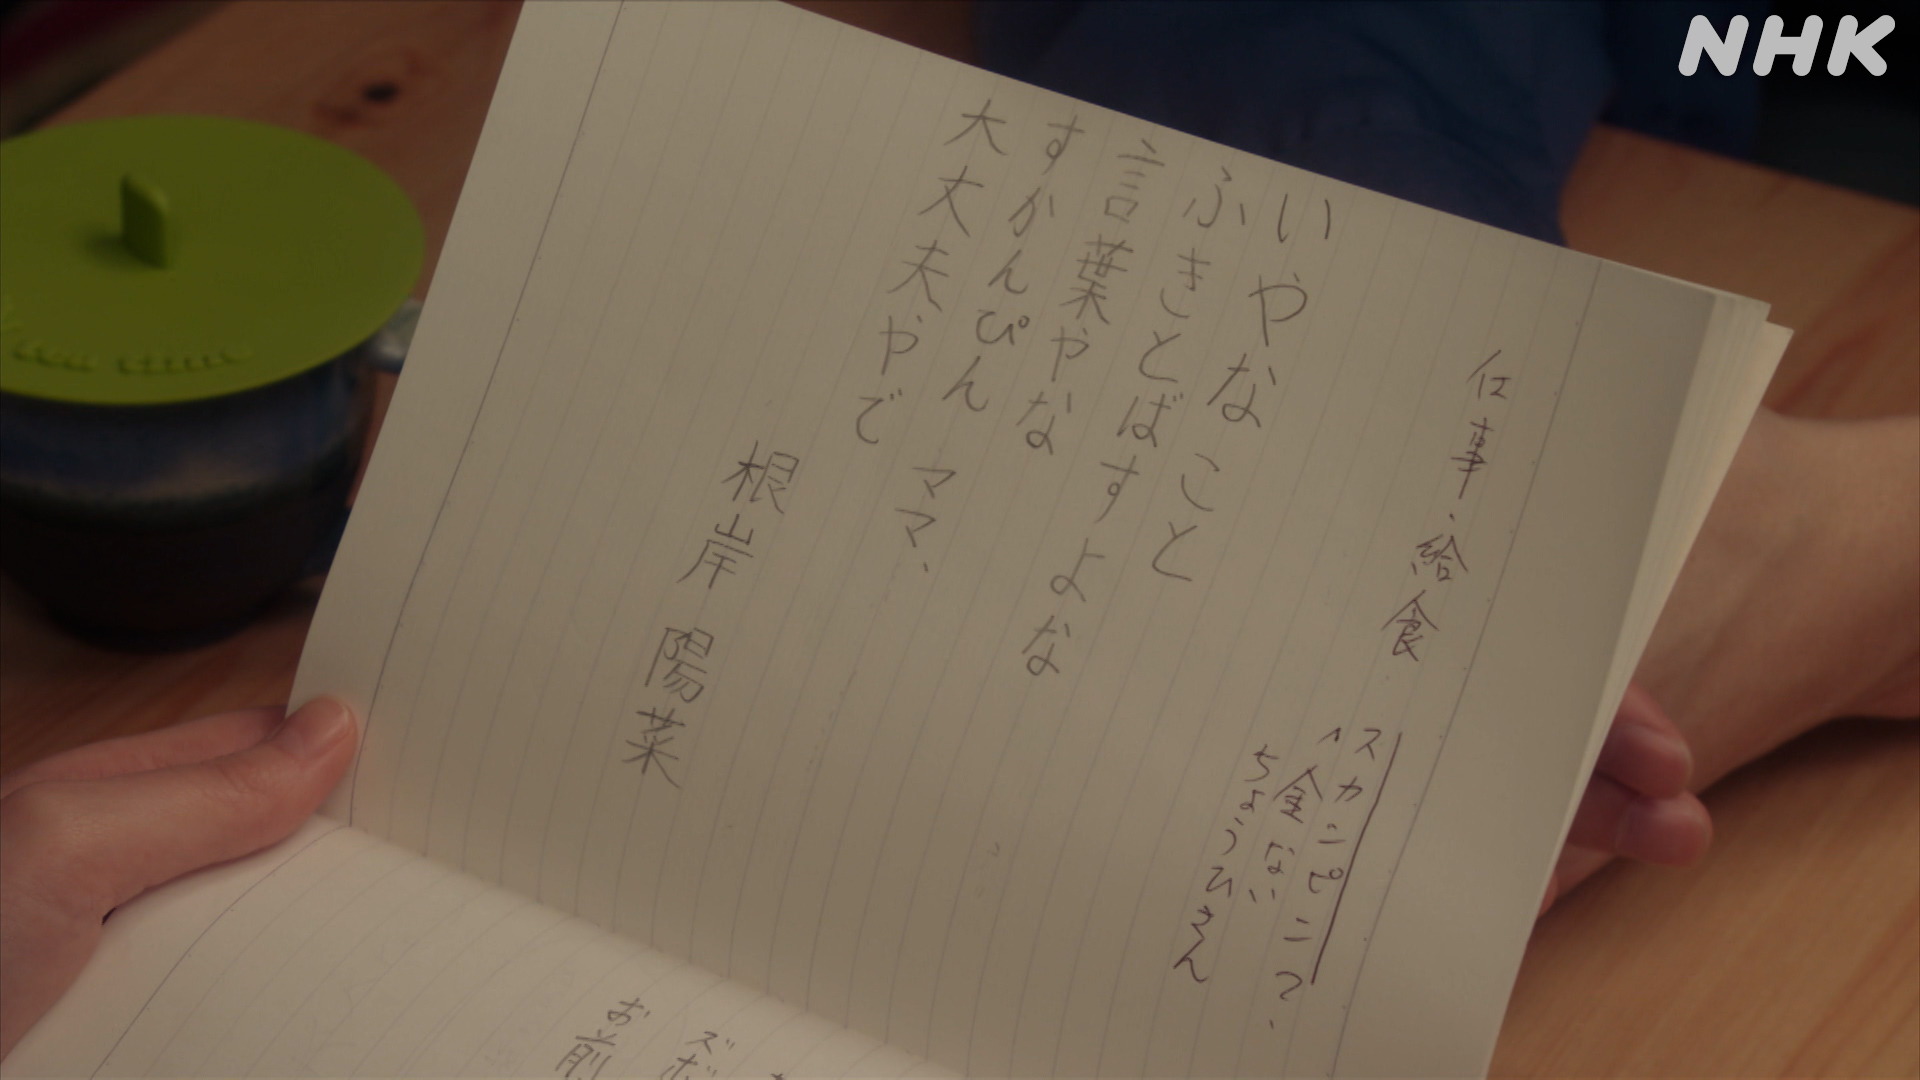 NHK
仕事・給食
スカンピンマ、
金ない
ちょうひきん
いやなこと
ふきとばすよな
言葉やな
すかんぴん ママ、
大丈夫やで
根岸 陽菜
お前